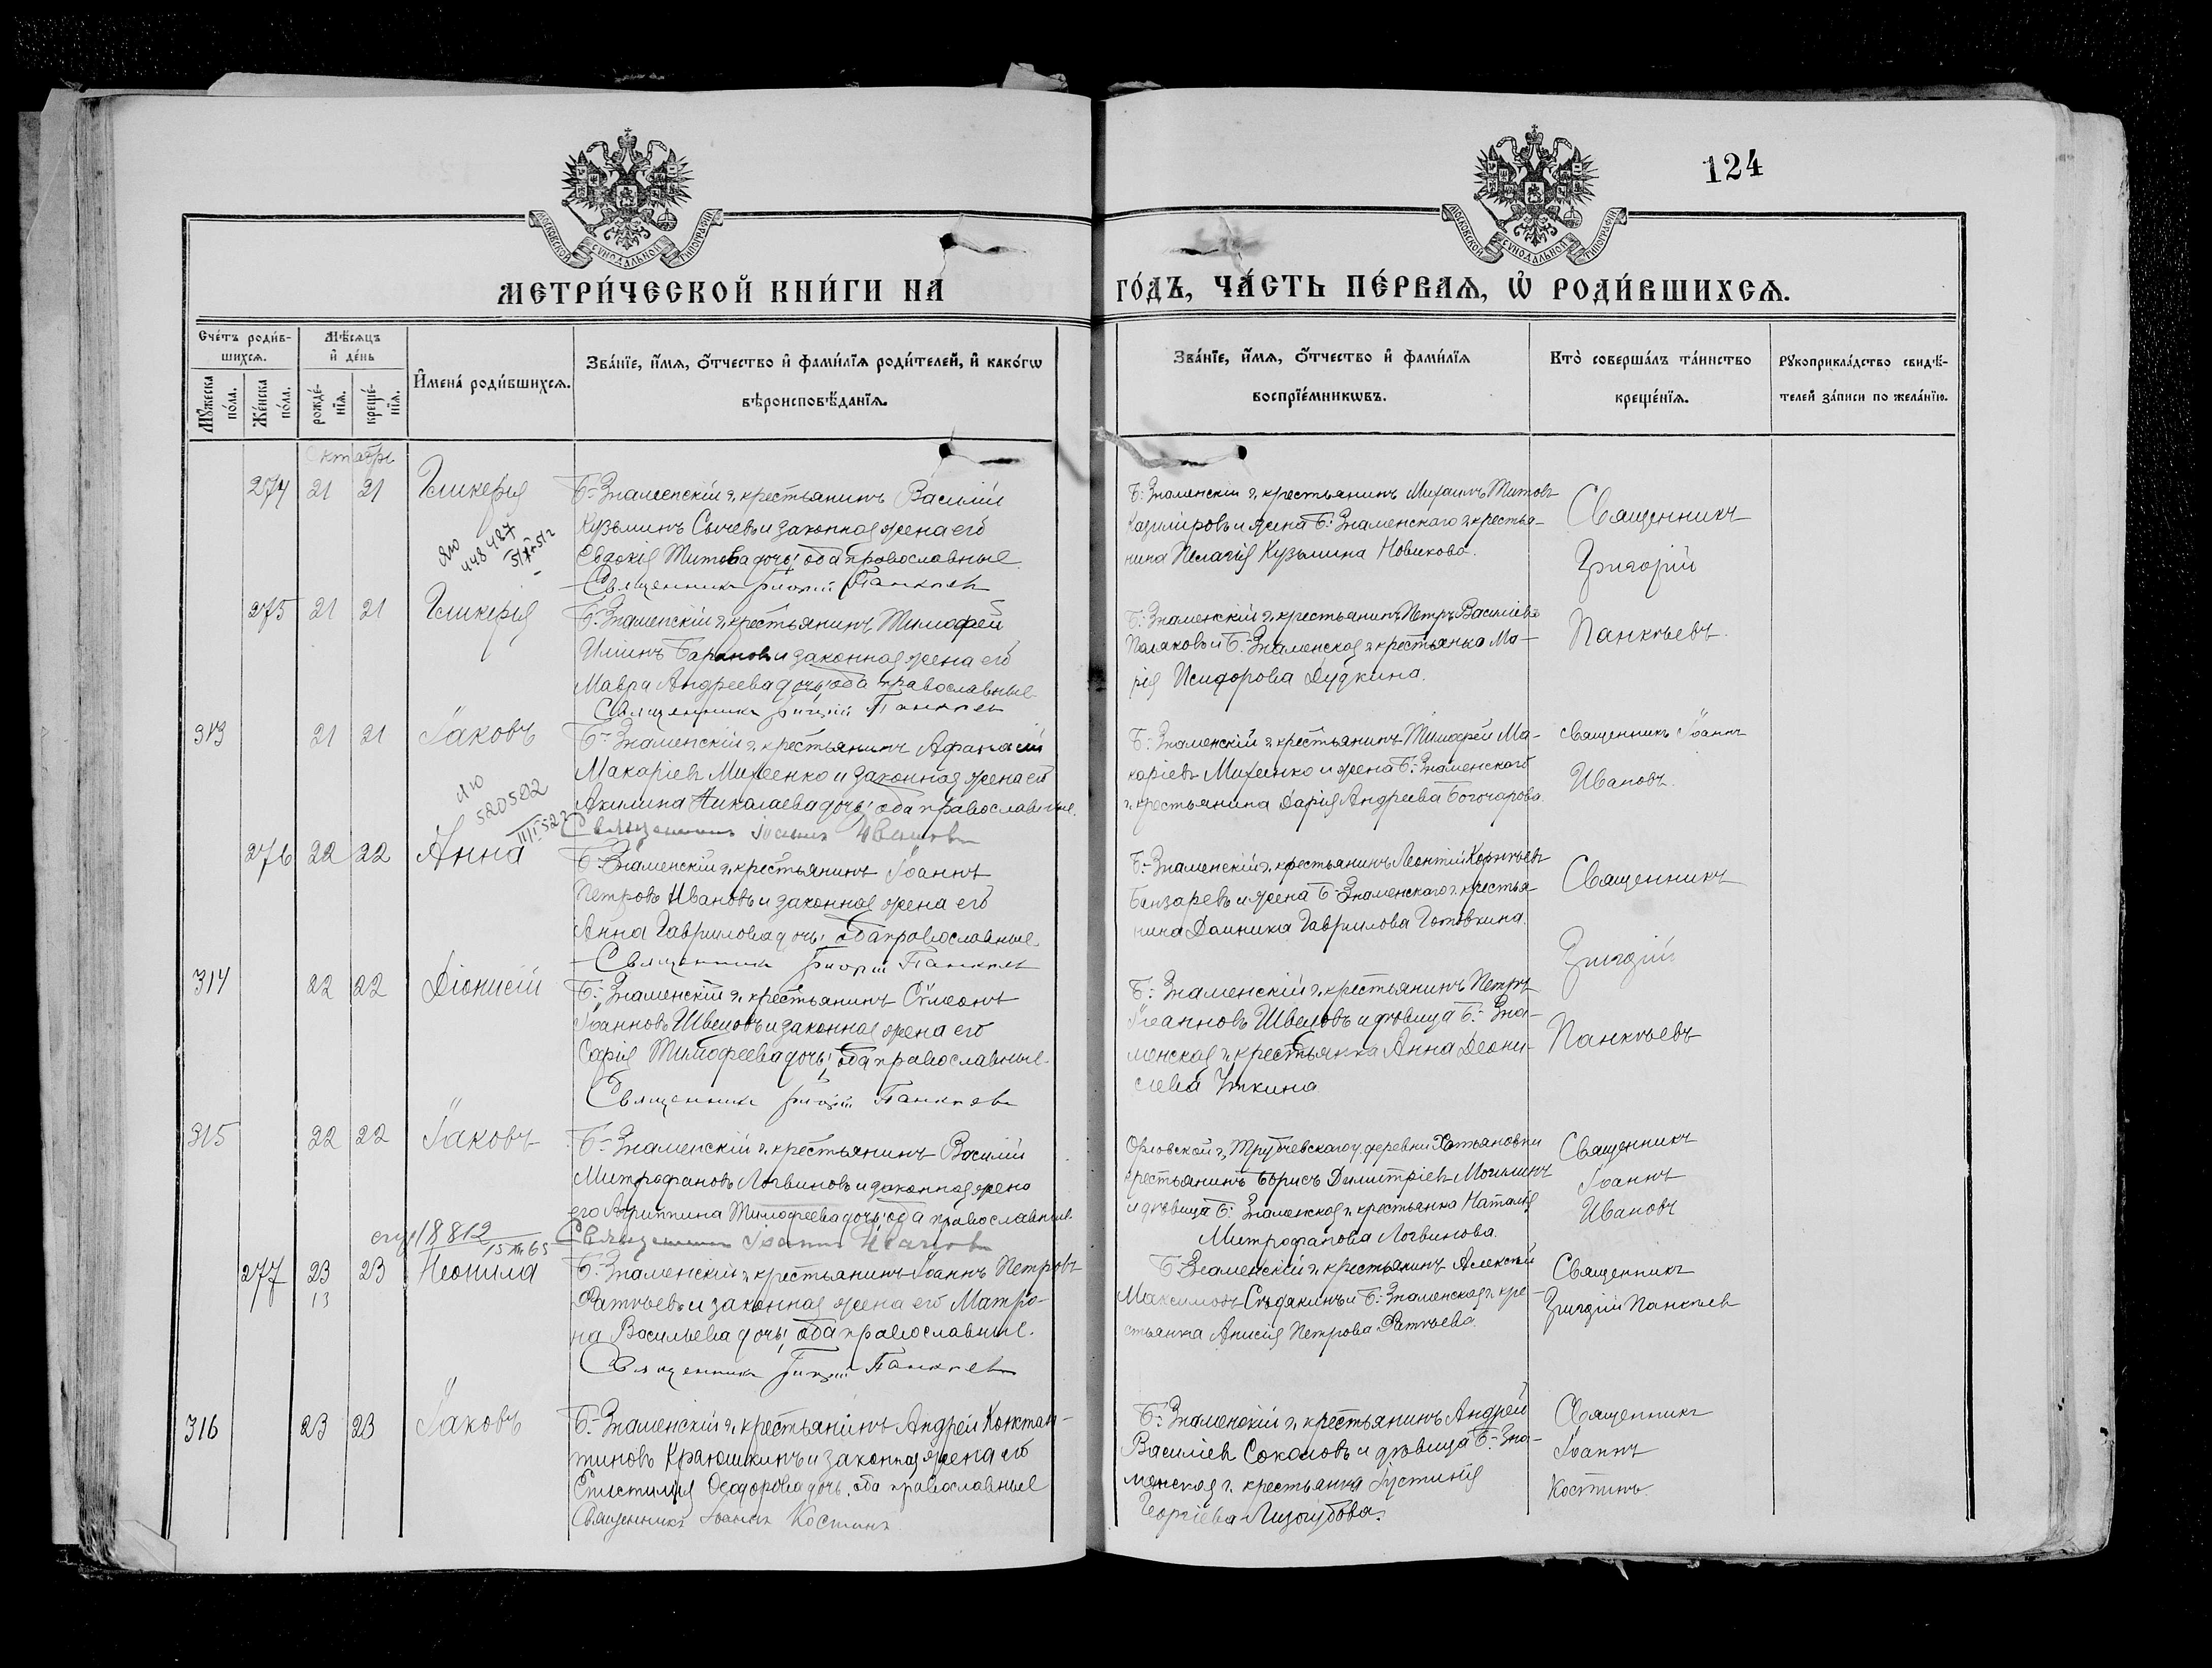 124
МОСКОВСКОЙ СѴНОДАЛЬНОЙ ТИПОГРАФІИ
МОСКОВСКОЙ СѴНОДАЛЬНОЙ ТИПОГРАФІИ
МЕТРИ́ЧЕСКОЙ КНИ́ГИ НА
ГО́ДЪ, ЧА́СТЬ ПЕ́РВАѦ, Ѡ҆ РОДИ́ВШИХСѦ.
Сче́тъ роди́в-
шихсѧ.
Мꙋ́жеска по́ла.
Же́нска по́ла.
Мѣ́сѧцъ
и҆ де́нь
рожде́-
нїѧ.
креще́-
нїѧ.
И҆мена̀ роди́вшихсѧ.
Зва́нїе, и҆́мѧ, ѻ҆́тчество и҆ фами́лїѧ роди́телей, и҆ како́гѡ
вѣроисповѣ́данїѧ.
Зва́нїе, и҆́мѧ, ѻ҆́тчество и҆ фами́лїѧ
воспрїе́мникѡвъ.
Кто̀ соверша́лъ та́инство
креще́нїѧ.
Рꙋкоприкла́дство свидѣ́-
телей за́писи по жела́нїю.
Октябрь
274 21 21 Гликерія
Б-Знаменскій г. крестьянинъ Василій
Кузьминъ Сычевъ и законная жена его
Евдокія Титова дочь; оба православные
Священникъ Григорій Панкѣевъ
448 487
Б-Знаменскій г. крестьянинъ Михаилъ Титовъ
Казиміровъ и жена Б-Знаменскаго г. крестья-
нина Пелагія Кузьмина Новикова.
Священникъ
Григорій
Панкѣевъ
275 21 21 Гликерія
Б-Знаменскій г. крестьянинъ Тимофей
Ильинъ Барановъ и законная жена его
Мавра Андреева дочь; оба православные
Священникъ Григорій Панкѣевъ
Б-Знаменскій г. крестьянинъ Петръ Васильевъ
Поляковъ и Б-Знаменская г. крестьянка Ма-
рія Исидорова Дудкина.
313 21 21 Іаковъ
Б-Знаменскій г. крестьянинъ Афанасій
Макаріевъ Михеенко и законная жена его
Акилина Николаева дочь; оба православные.
Священникъ Іоаннъ Ивановъ
520502
Б-Знаменскій г. крестьянинъ Тимофей Ма-
каріевъ Михеенко и жена Б-Знаменскаго
г. крестьянина Дарія Андреева Богочарова.
священникъ Іоаннъ
Ивановъ.
276 22 22 Анна
Б-Знаменскій г. крестьянинъ Іоаннъ
Петровъ Ивановъ и законная жена его
Анна Гавриилова дочь; оба православные.
Священникъ Григорій Панкѣевъ
Б-Знаменскій г. крестьянинъ Леонтій Корнѣевъ
Бонзаревъ и жена Б-Знаменскаго г. крестья-
нина Домника Гавриилова Готовкина.
Священникъ
Григорій
Панкѣевъ
314 22 22 Діонисій
Б-Знаменскій г. крестьянинъ Сѵмеонъ
Іоанновъ Швецовъ и законная жена его
Софія Тимофеева дочь; оба православные.
Священникъ Григорій Панкѣевъ
Б-Знаменскій г. крестьянинъ Петръ
Іоанновъ Швецовъ и дѣвица Б-Зна-
менская г. крестьянка Анна Деони-
сіева Уткина
315 22 22 Іаковъ
Б-Знаменскій г. крестьянинъ Василій
Митрофановъ Логвиновъ и законная жена
его Агриппина Тимофеева дочь; оба православные.
Священникъ Іоаннъ Ивановъ
18812
Орловской г. Трубчевскаго у. деревни
крестьянинъ Борисъ Димитріевъ Могилинъ
и дѣвица Б-Знаменская г. крестьянка Наталія
Митрофанова Логвинова.
Священникъ
Іоаннъ
Ивановъ
277 23 23 Неонила
13
Б-Знаменскій г. крестьянинъ Іоаннъ Петровъ
Фатѣевъ и законная жена его Матро-
на Васильева дочь; оба православные.
Священникъ Григорій Панкѣевъ
Б-Знаменскій г. крестьянинъ Алексѣй
Максимовъ Сѣдакинъ и Б-Знаменская г. кре-
стьянка Анисія Петрова Фатѣева.
Священникъ
Григорій Панкѣевъ
316 23 23 Іаковъ
Б-Знаменскій г. крестьянинъ Андрей Констан-
тиновъ Краюшкинъ и законная жена его
Епистимія Ѳеодорова дочь, оба православные
Священникъ Іоаннъ Костинъ
Б-Знаменскій г. крестьянинъ Андрей
Василіевъ Соколовъ и дѣвица Б-Зна-
менская г. крестьянка Іустинія
Георгіева Лизогубова.
Священникъ
Іоаннъ
Костинъ.